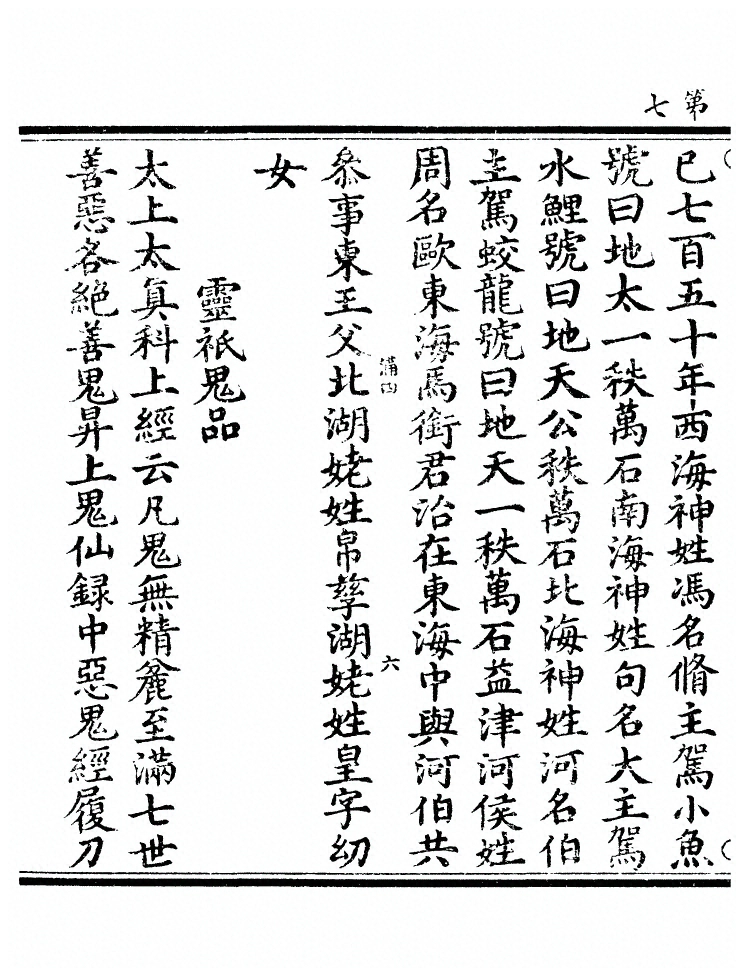 第七
已七百五十年西海神姓馮名脩主駕小魚
號曰地太一秩萬石南海神姓句名大主駕
水鯉號曰地天公秩萬石北海神姓河名伯
主駕蛟龍號曰地天一秩萬石益津河侯姓
周名歐東海馮銜君治在東海中與河伯共
滿四
六
叅事東王父北湖姥姓帛孳湖姥姓皇字幼
女
靈祇鬼品
太上太真科上經云凡鬼無精麄至滿七世
善惡各絶善鬼昇上鬼仙録中惡鬼經履刀